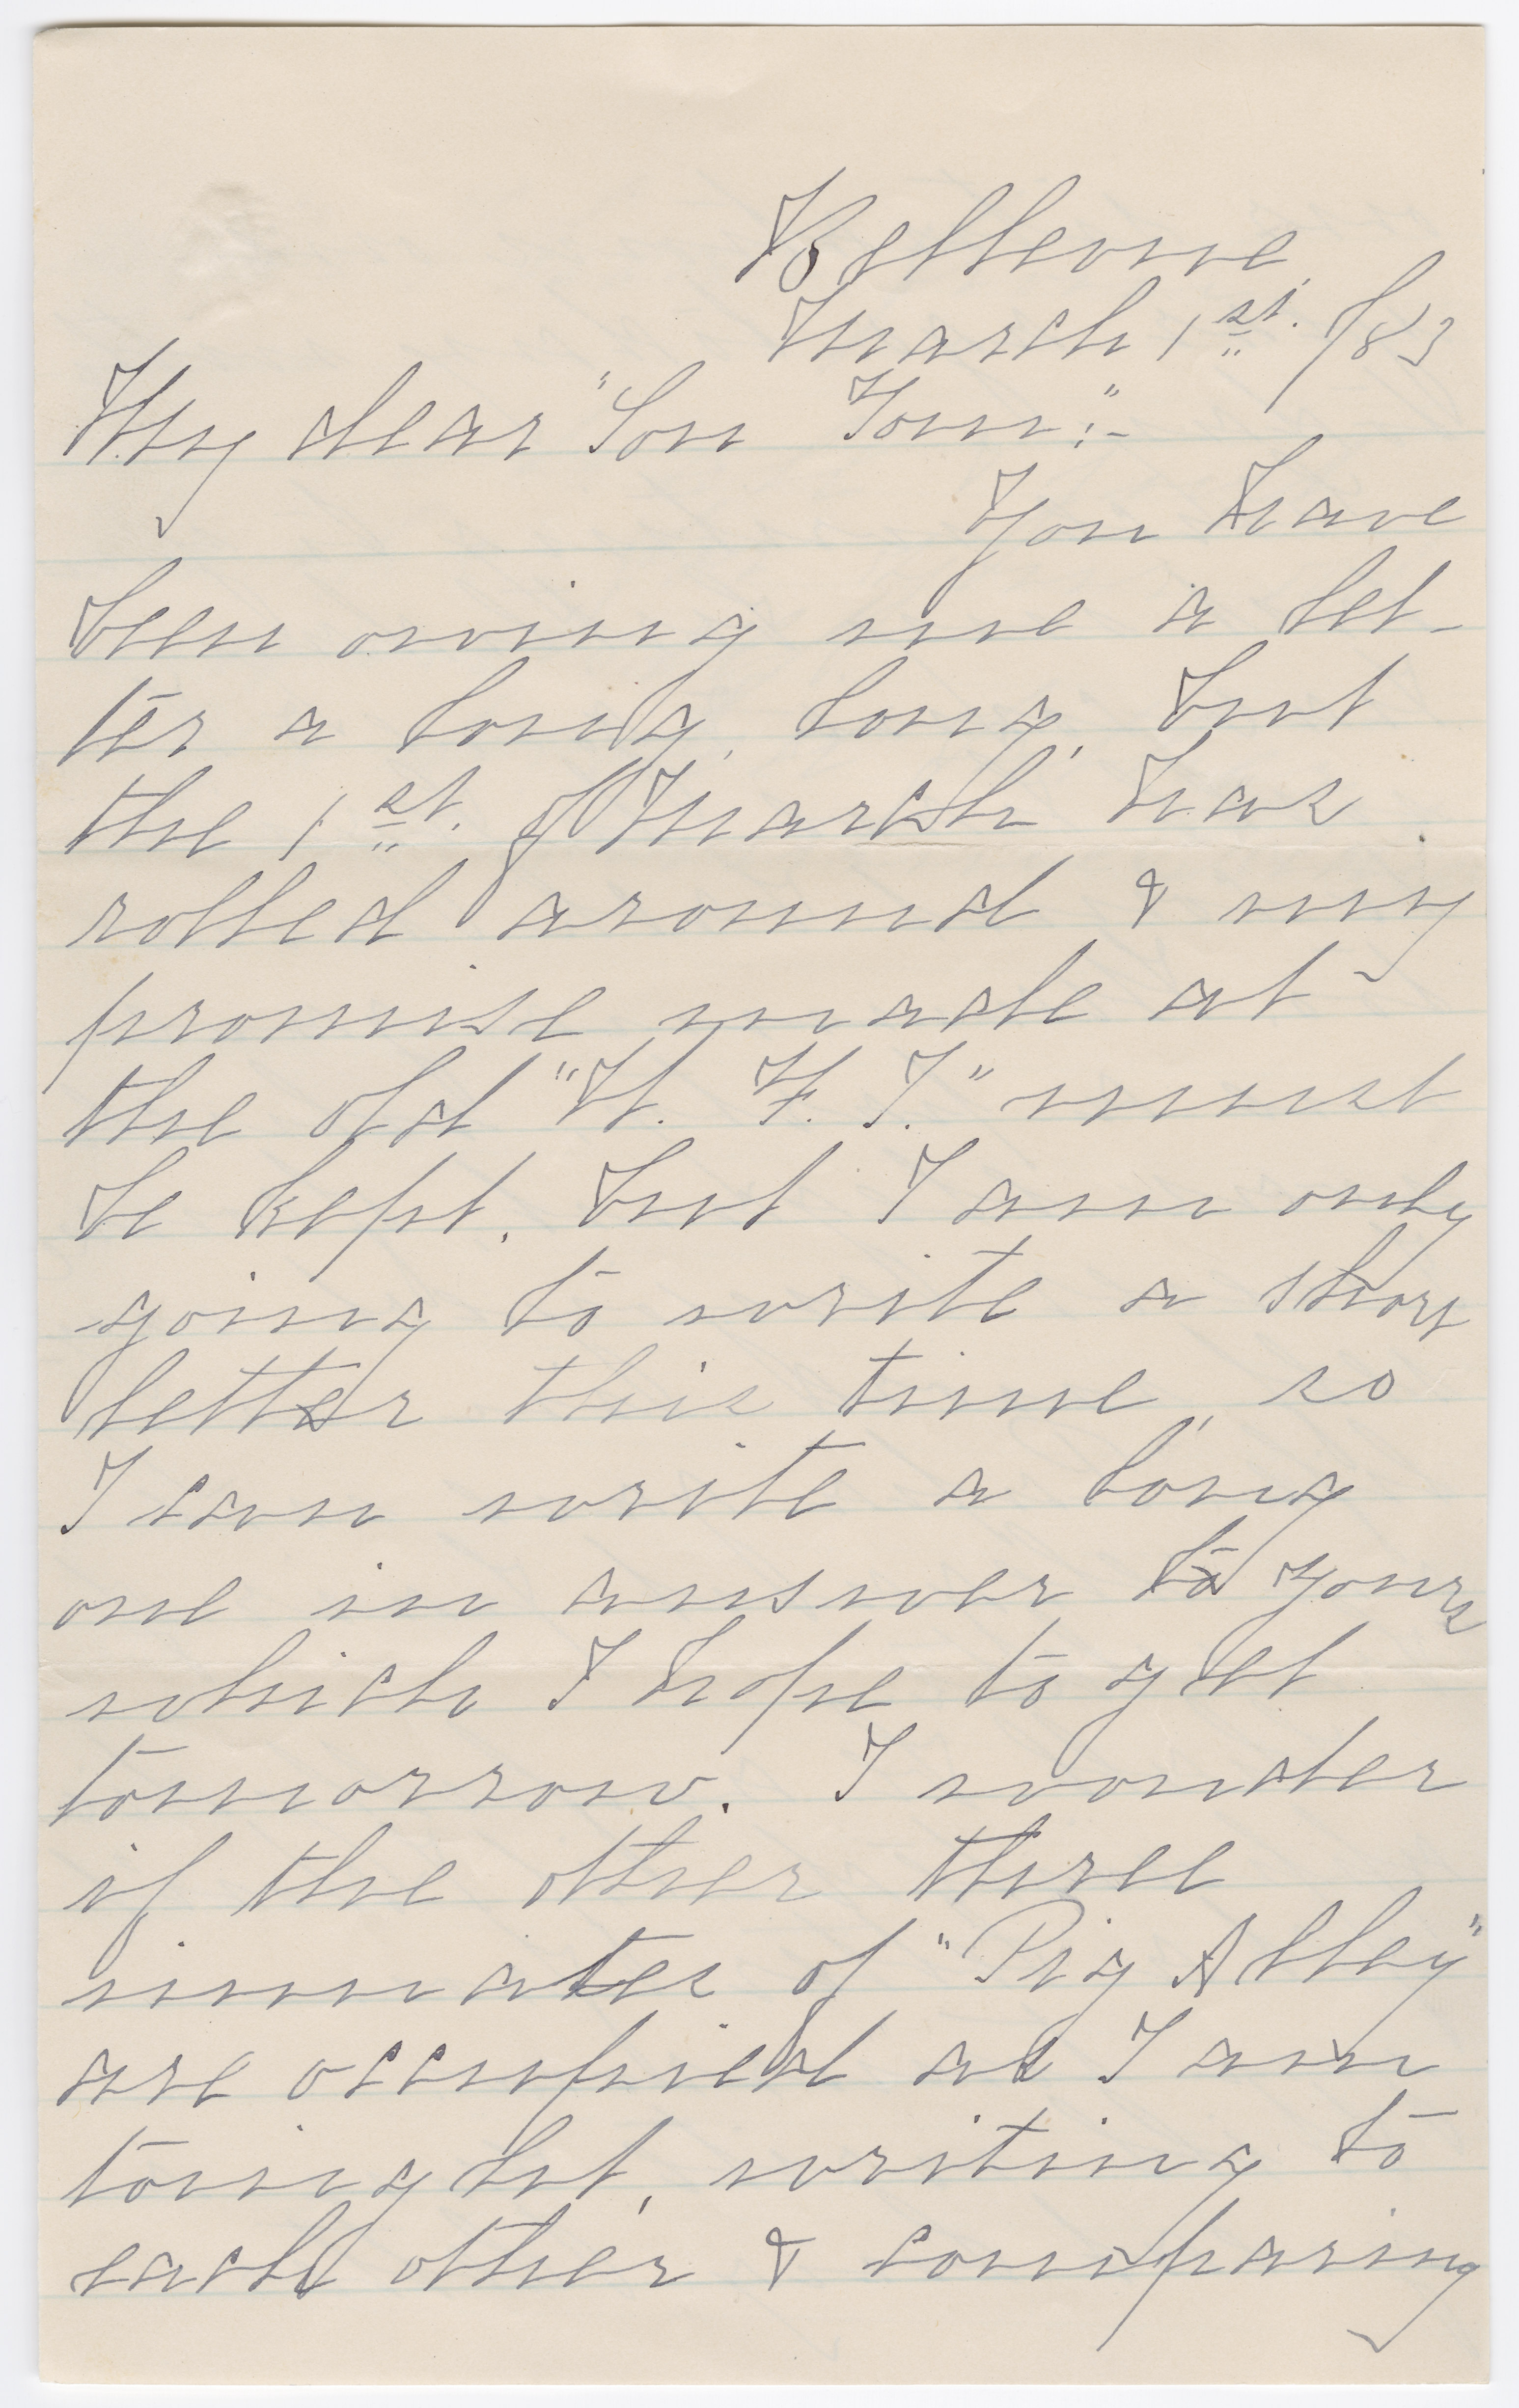 Bellevue,
March 1st. /83
My dear "Son Tom":-
You have
been owing me a let-
ter a long, long, but
the 1st. of March has
rolled around & my
promise made at
the old "W. F. I." must
be kept, but I am only
going to write a short
letter this time, so
I can write a long
one in answer to yours
which I hope to get
tomorrow. I wonder
if the other three
inmates of "Pig Alley"
are occupied as I am
tonight, writing to
each other & comparing